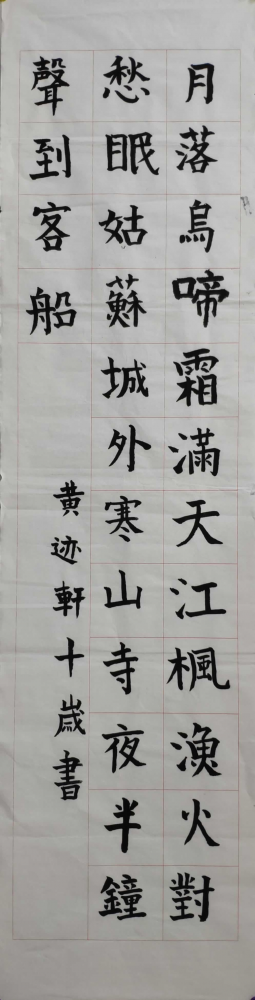 月落烏啼霜滿天江楓漁火對
愁眠姑蘇城外寒山寺夜半鐘
聲到客船
黄迹軒十歲書